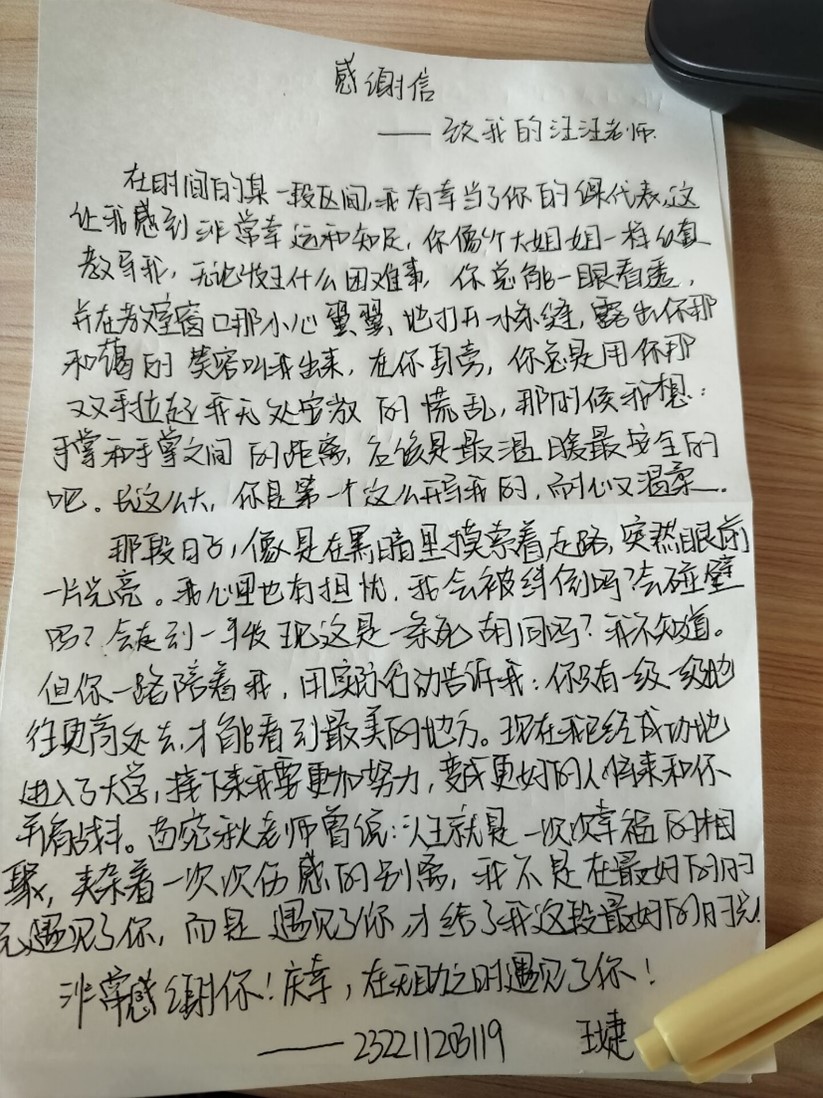 感谢信
—— 致我的汪汪老师
在时间的某一段区间,我有幸当了你的课代表,这
让我感到非常幸运和知足,你像个大姐姐一样
教导我,无论发生什么困难事,你总能一眼看透,
并在教室窗口那小心翼翼、地打开一小条缝,露出你那
和蔼的笑容叫我出来,在你身旁,你总是用你那
双手拉起我无处安放的慌乱,那时候我想:
手掌和手掌之间的距离,应该是最温暖最安全的
吧。长这么大,你是第一个这么开导我的,而耐心又温柔。
那段日子,像是在黑暗里摸索着走路,突然眼前
一片光亮。我心里也有担忧,我会被绊倒吗?会碰壁
吗?会走到一半发现这是一条死胡同吗?我不知道。
但你一路陪着我,用实际行动告诉我:你只有一级一级地
往更高处去,才能看到最美的地方。现在我已经成功地
进入了大学,接下来我要更加努力,变成更好的人,将来和你
并肩战斗。苗宛秋老师曾说:人生就是一次次幸福的相
聚,夹杂着一次次伤感的别离,我不是在最好的时
光遇见了你,而是遇见了你,才给了我这段最好的时光!
非常感谢你!庆幸,在无助之时遇见了你!
—— 王婕